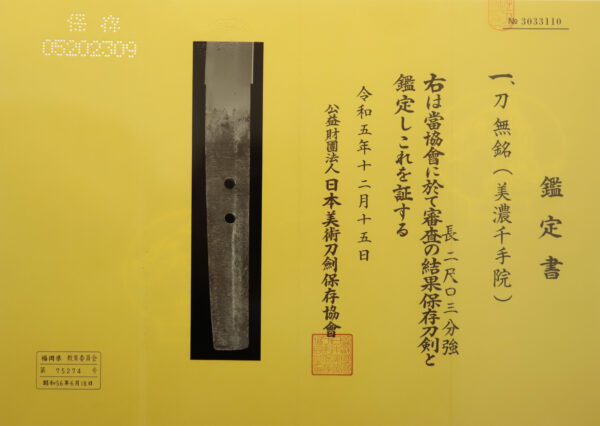 № 3033110
保存
05202309
鑑定書
一、刀 無銘（美濃千手院）
長二尺〇三分強
右は當協會に於て審査の結果保存刀剣と
鑑定しこれを証する
令和五年十二月十五日
公益財團法人日本美術刀劍保存協會
福岡県 教育委員会
第 75274 号
昭和56年6月18日